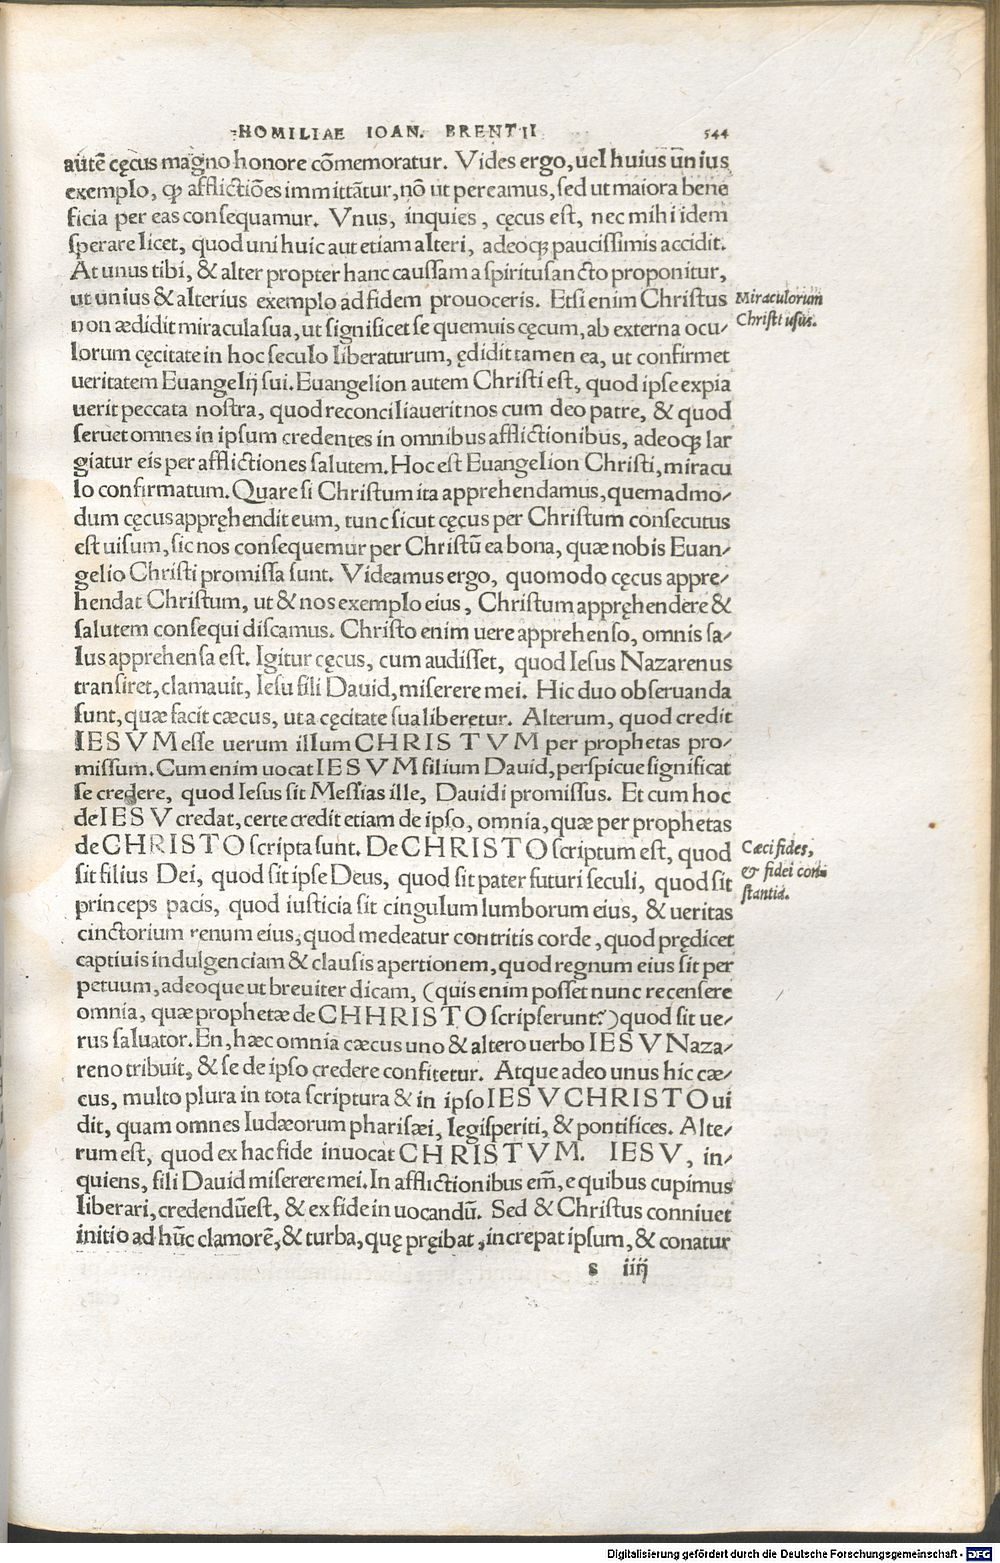 HOMILIAE IOAN. BRENTII 544
autē cęcus magno honore cōmemoratur. Vides ergo, uel huius unius
exemplo, ꝙ afflictiōes immittātur, nō ut pereamus, sed ut maiora bene
ficia per eas consequamur. Vnus, inquies, cęcus est, nec mihi idem
sperare licet, quod uni huic aut etiam alteri, adeoqꝫ paucissimis accidit.
At unus tibi, & alter propter hanc caussam a spiritusancto proponitur,
ut unius & alterius exemplo ad fidem prouoceris. Etsi enim Christus
non ædidit miracula sua, ut significet se quemuis cęcum, ab externa ocu/
lorum cęcitate in hoc seculo liberaturum, ędidit tamen ea, ut confirmet
ueritatem Euangelij sui. Euangelion autem Christi est, quod ipse expia
uerit peccata nostra, quod reconciliauerit nos cum deo patre, & quod
seruet omnes in ipsum credentes in omnibus afflictionibus, adeoqꝫ lar
giatur eis per afflictiones salutem. Hoc est Euangelion Christi, miracu
lo confirmatum. Quare si Christum ita apprehendamus, quemadmo/
dum cęcus appręhendit eum, tunc sicut cęcus per Christum consecutus
est uisum, sic nos consequemur per Christū ea bona, quæ nobis Euan/
gelio Christi promissa sunt. Videamus ergo, quomodo cęcus appre/
hendat Christum, ut & nos exemplo eius, Christum appręhendere &
salutem consequi discamus. Christo enim uere apprehenso, omnis sa/
lus apprehensa est. Igitur cęcus, cum audisset, quod Iesus Nazarenus
transiret, clamauit, Iesu fili Dauid, miserere mei. Hic duo obseruanda
sunt, quæ facit cæcus, ut a cęcitate sua liberetur. Alterum, quod credit
IESVM esse uerum illum CHRISTVM per prophetas pro/
missum. Cum enim uocat IESVM filium Dauid, perspicue significat
se credere, quod Iesus sit Messias ille, Dauidi promissus. Et cum hoc
de IESV credat, certe credit etiam de ipso, omnia, quæ per prophetas
de CHRISTO scripta sunt. De CHRISTO scriptum est, quod
sit filius Dei, quod sit ipse Deus, quod sit pater futuri seculi, quod sit
princeps pacis, quod iusticia sit cingulum lumborum eius, & ueritas
cinctorium renum eius, quod medeatur contritis corde, quod prędicet
captiuis indulgenciam & clausis apertionem, quod regnum eius sit per
petuum, adeoque ut breuiter dicam, (quis enim posset nunc recensere
omnia, quæ prophetæ de CHHRISTO scripserunt?) quod sit ue/
rus saluator. En, hæc omnia cæcus uno & altero uerbo IESV Naza/
reno tribuit, & se de ipso credere confitetur. Atque adeo unus hic cæ/
cus, multo plura in tota scriptura & in ipso IESV CHRISTO ui
dit, quam omnes Iudæorum pharisæi, legisperiti, & pontifices. Alte/
rum est, quod ex hac fide inuocat CHRISTVM. IESV, in/
quiens, fili Dauid miserere mei. In afflictionibus em̄, e quibus cupimus
liberari, credendūest, & ex fide in uocandū. Sed & Christus conniuet
initio ad hūc clamorē, & turba, quę pręibat, increpat ipsum, & conatur
s iiij
Miraculorum
Christi usus.
Cæci fides,
& fidei con-
stantia.
Digitalisierung gefördert durch die Deutsche Forschungsgemeinschaft - DFG